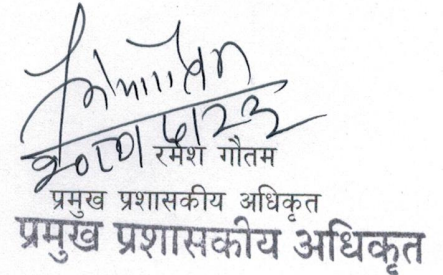 रमेश गौतम
प्रमुख प्रशासकीय अधिकृत
प्रमुख प्रशासकीय अधिकृत